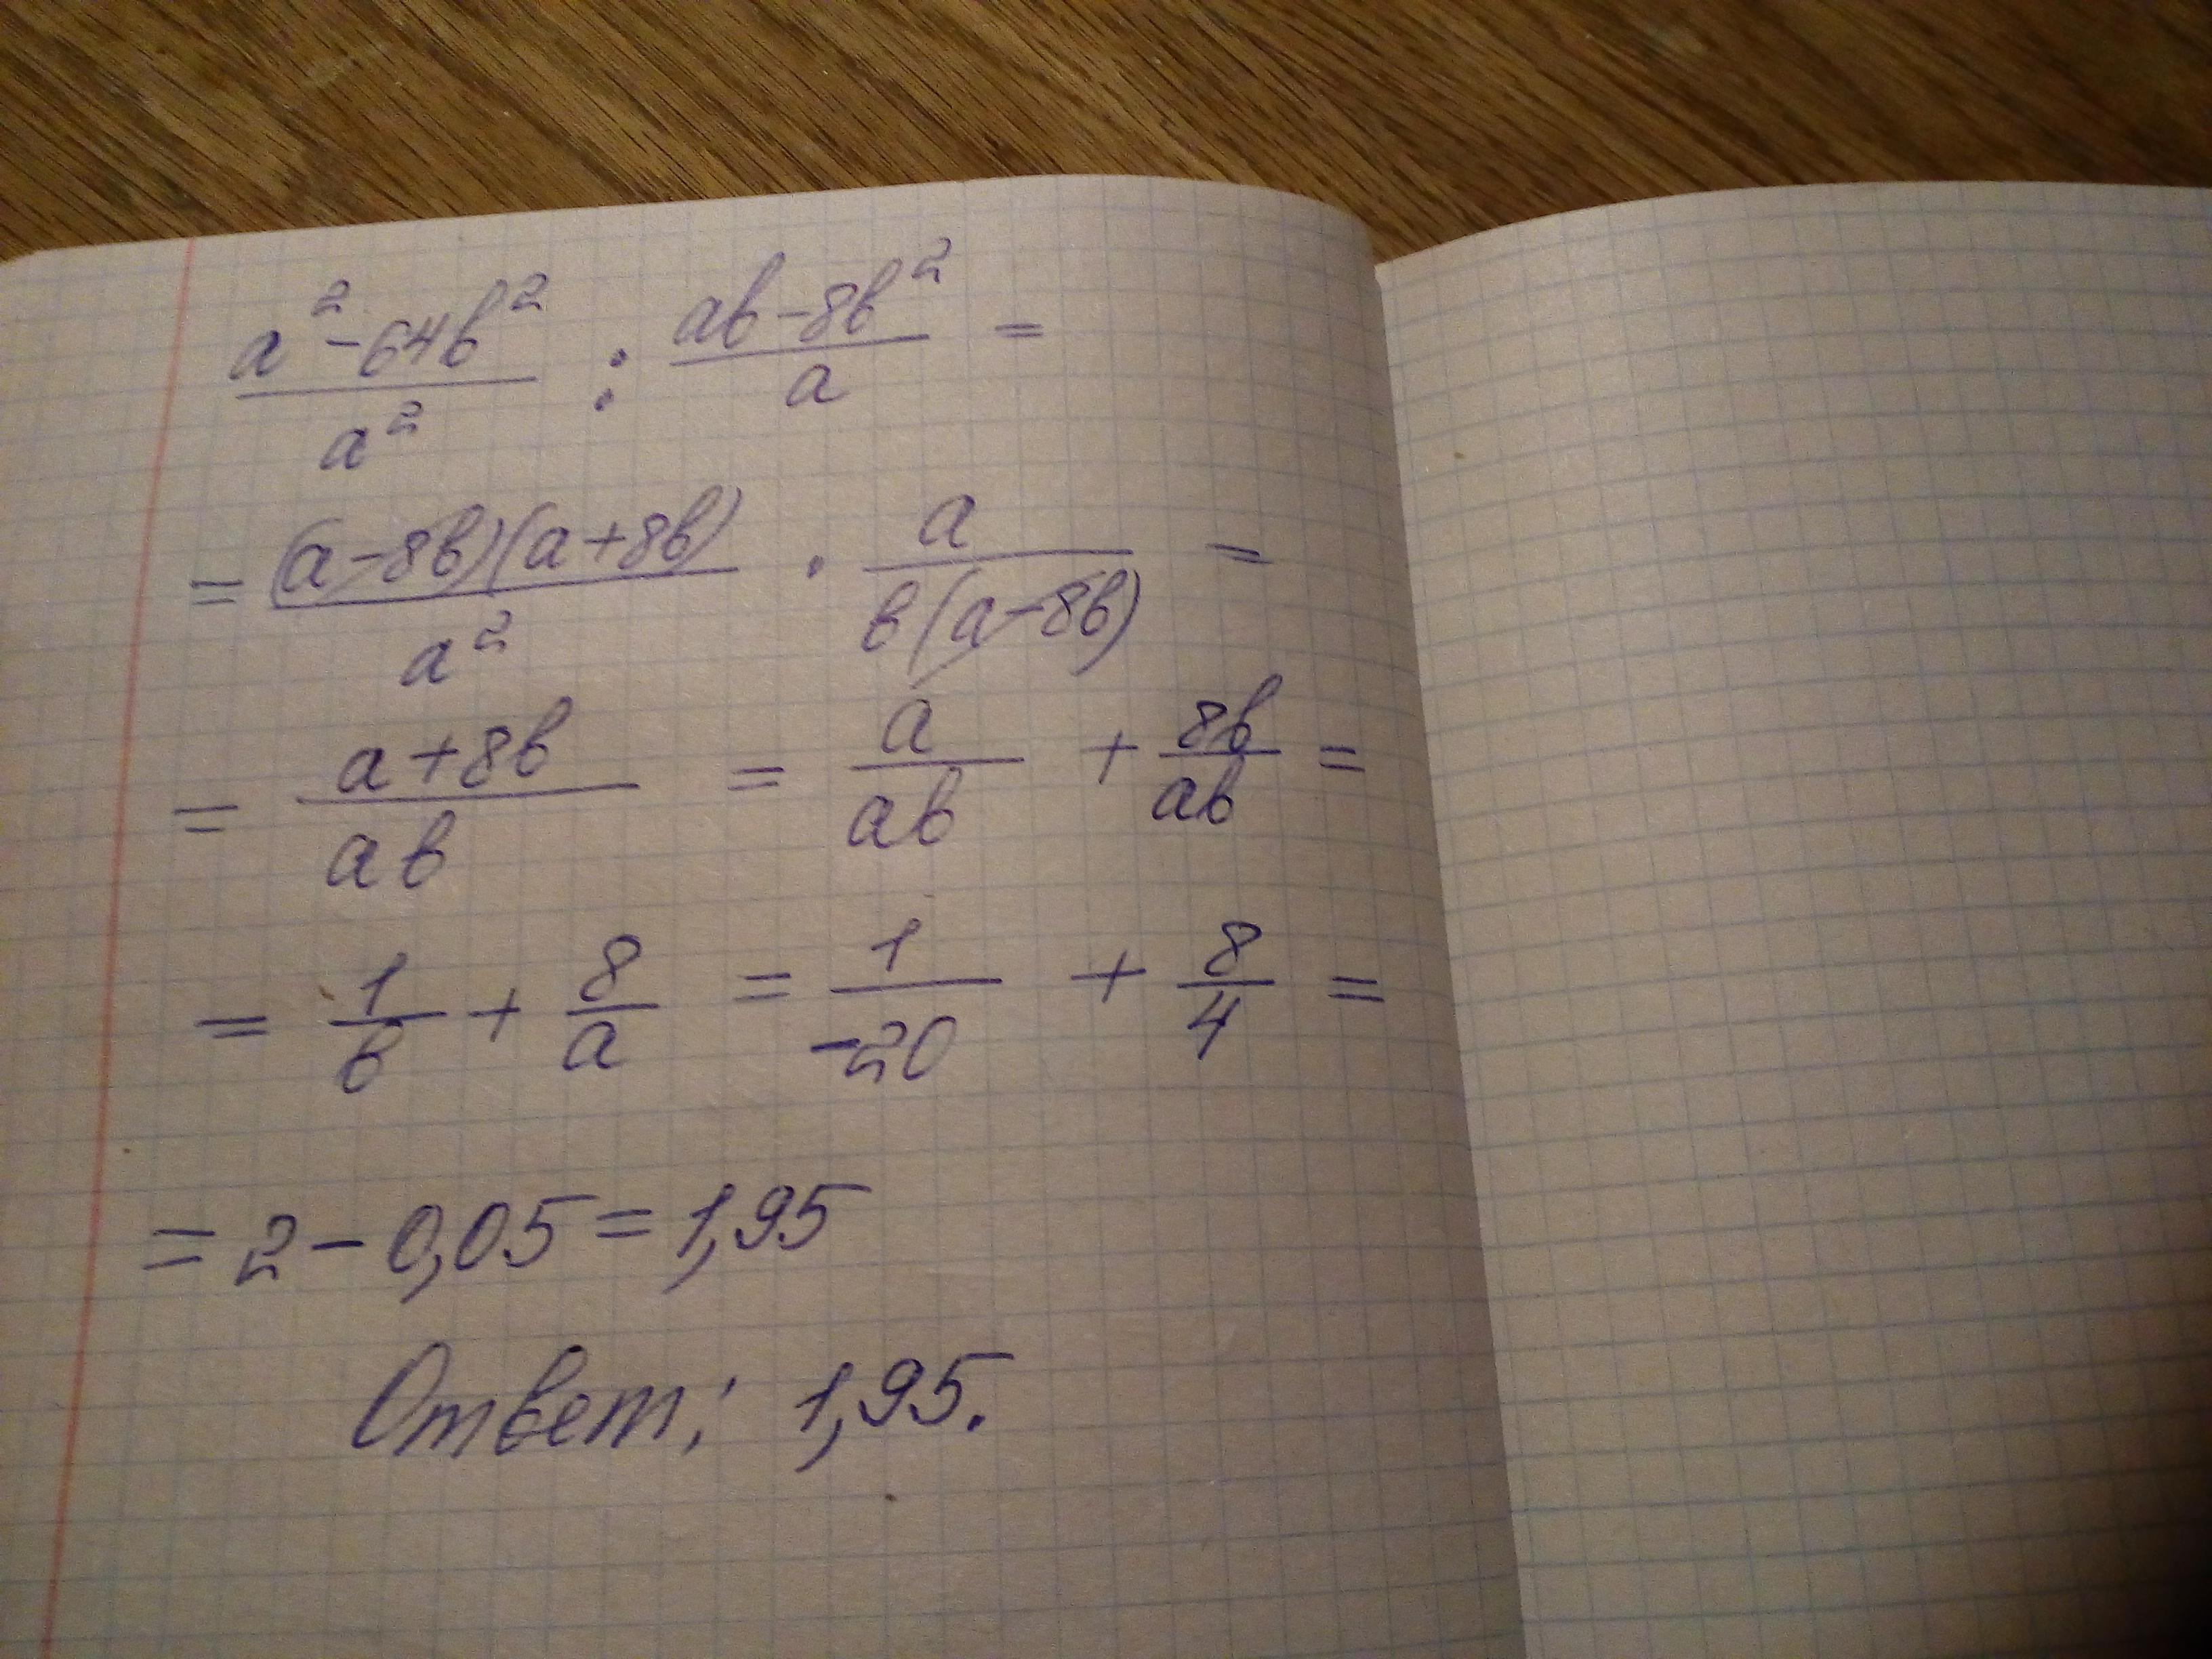 (a² - 64b²)/a² : (ab - 8b²)/a =
= (a - 8b)(a + 8b)/a² · a/(b(a - 8b)) =
= (a + 8b)/(ab) = a/(ab) + 8b/(ab) =
= 1/b + 8/a = 1/(-20) + 8/4 =
= 2 - 0,05 = 1,95
Ответ: 1,95.